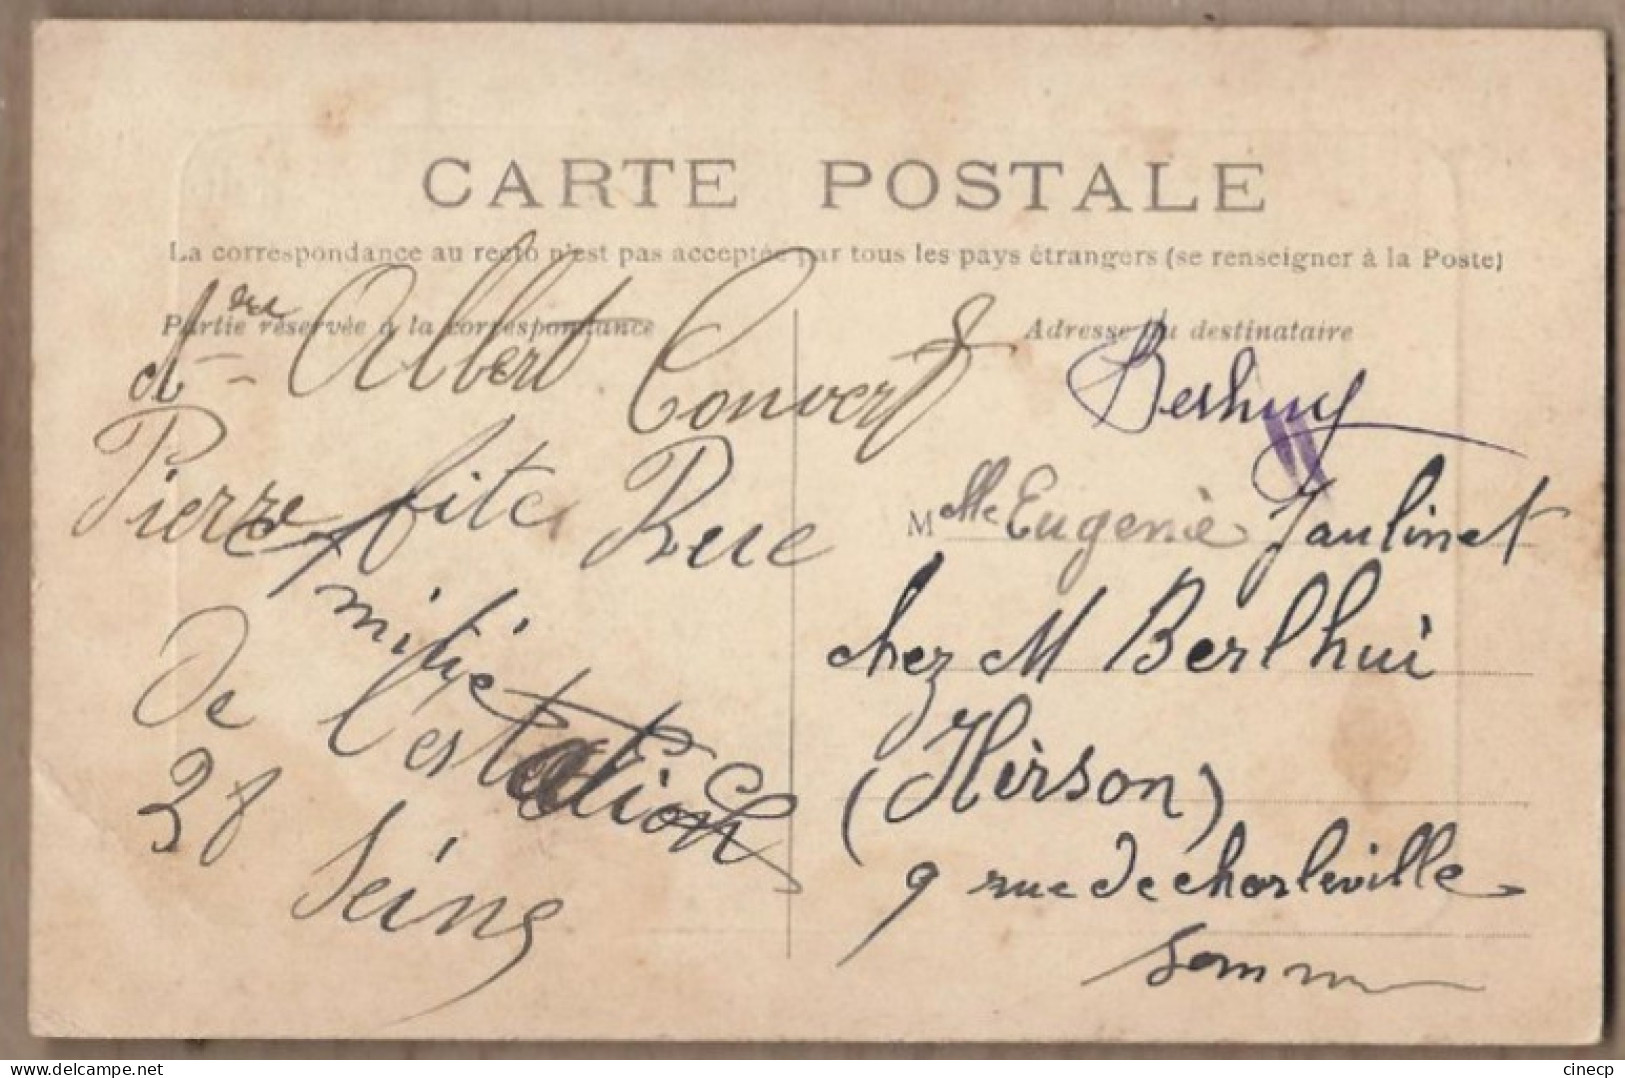 CARTE POSTALE
La correspondance au recto n'est pas acceptée par tous les pays étrangers (se renseigner à la Poste)
Partie réservée à la correspondance
Adresse du destinataire
Albert Convert
Pierre fite Rue
De l'estation
38 Seine
Melle Eugenie Jaulinet
chez M Berlhui
(Hirson)
9 rue de charleville
cinecp